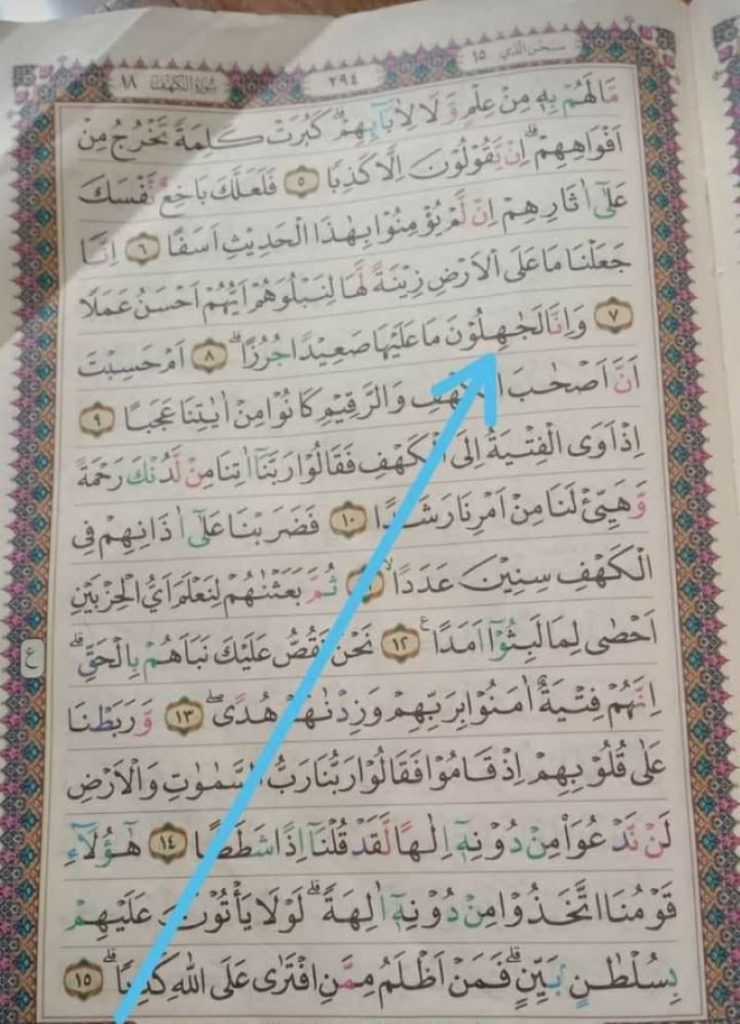 سبحن الذي ١٥ ٢٩٤ سُوْرَةُ الْكَهْفِ ١٨
مَا لَهُمْ بِهٖ مِنْ عِلْمٍ وَّلَا لِاٰبَاۤىِٕهِمْۗ كَبُرَتْ كَلِمَةً تَخْرُجُ مِنْ
اَفْوَاهِهِمْۗ اِنْ يَّقُوْلُوْنَ اِلَّا كَذِبًا ٥ فَلَعَلَّكَ بَاخِعٌ نَّفْسَكَ
عَلٰٓى اٰثَارِهِمْ اِنْ لَّمْ يُؤْمِنُوْا بِهٰذَا الْحَدِيْثِ اَسَفًا ٦ اِنَّا
جَعَلْنَا مَا عَلَى الْاَرْضِ زِيْنَةً لَّهَا لِنَبْلُوَهُمْ اَيُّهُمْ اَحْسَنُ عَمَلًا
٧ وَاِنَّا لَجٰهِلُوْنَ مَا عَلَيْهَا صَعِيْدًا جُرُزًاۗ ٨ اَمْ حَسِبْتَ
اَنَّ اَصْحٰبَ الْكَهْفِ وَالرَّقِيْمِ كَانُوْا مِنْ اٰيٰتِنَا عَجَبًا ٩
اِذْ اَوَى الْفِتْيَةُ اِلَى الْكَهْفِ فَقَالُوْا رَبَّنَآ اٰتِنَا مِنْ لَّدُنْكَ رَحْمَةً
وَّهَيِّئْ لَنَا مِنْ اَمْرِنَا رَشَدًا ١٠ فَضَرَبْنَا عَلٰٓى اٰذَانِهِمْ فِى
الْكَهْفِ سِنِيْنَ عَدَدًاۙ ثُمَّ بَعَثْنٰهُمْ لِنَعْلَمَ اَيُّ الْحِزْبَيْنِ
اَحْصٰى لِمَا لَبِثُوْٓا اَمَدًا ࣖ ١٢ نَحْنُ نَقُصُّ عَلَيْكَ نَبَاَهُمْ بِالْحَقِّۗ ع
اِنَّهُمْ فِتْيَةٌ اٰمَنُوْا بِرَبِّهِمْ وَزِدْنٰهُمْ هُدًىۖ ١٣ وَّرَبَطْنَا
عَلٰى قُلُوْبِهِمْ اِذْ قَامُوْا فَقَالُوْا رَبُّنَا رَبُّ السَّمٰوٰتِ وَالْاَرْضِ
لَنْ نَّدْعُوَا۟ مِنْ دُوْنِهٖٓ اِلٰهًا لَّقَدْ قُلْنَآ اِذًا شَطَطًا ١٤ هٰٓؤُلَاۤءِ
قَوْمُنَا اتَّخَذُوْا مِنْ دُوْنِهٖٓ اٰلِهَةًۗ لَوْلَا يَأْتُوْنَ عَلَيْهِمْ
بِسُلْطٰنٍۢ بَيِّنٍۗ فَمَنْ اَظْلَمُ مِمَّنِ افْتَرٰى عَلَى اللّٰهِ كَذِبًاۗ ١٥